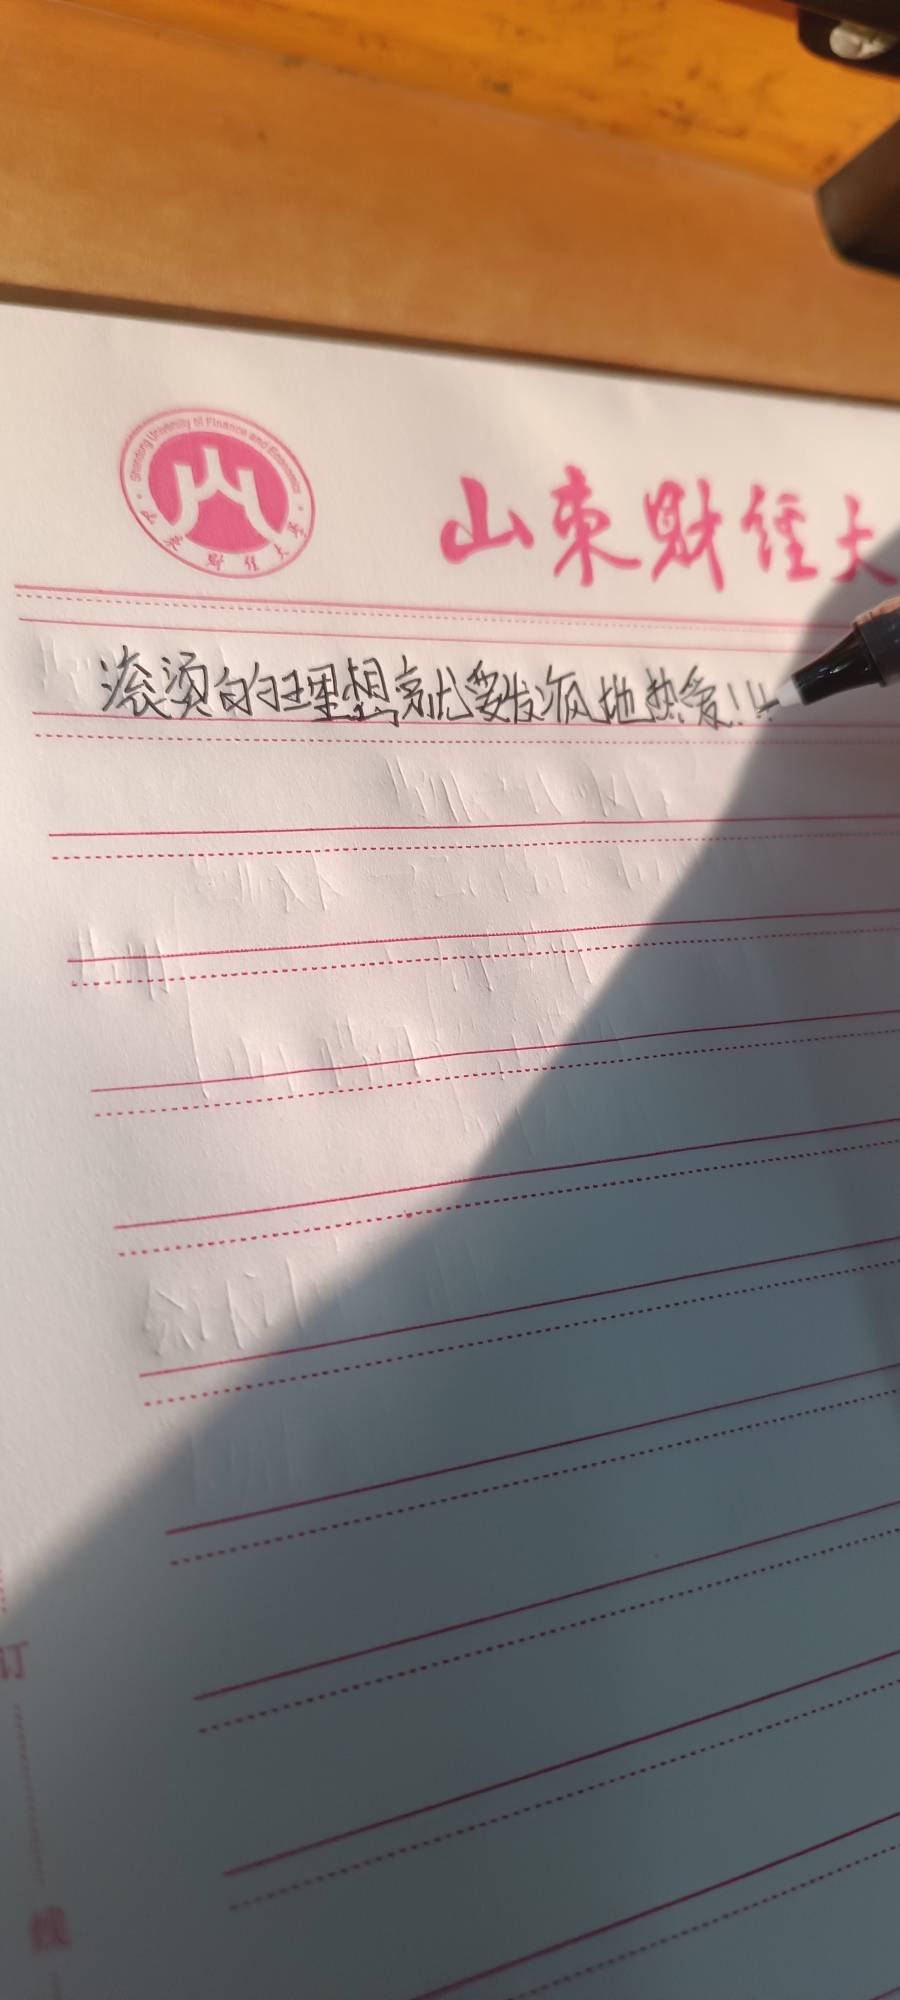 Shandong University of Finance and Economics
山东财经大学
山东财经大
滚烫的理想就要发疯地热爱！！
订
线